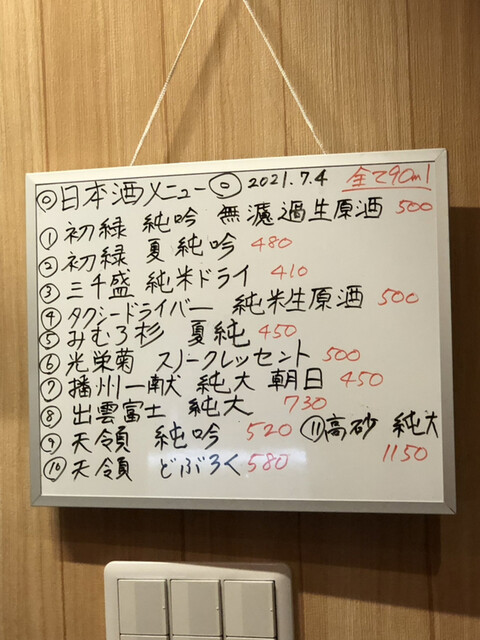 ◎日本酒メニュー◎ 2021.7.4 全て90ml
① 初緑 純吟 無濾過生原酒 500
② 初緑 夏純吟 480
③ 三千盛 純米ドライ 410
④ タクシードライバー 純米生原酒 500
⑤ みむろ杉 夏純 450
⑥ 光栄菊 スノークレッセント 500
⑦ 播州一献 純大 朝日 450
⑧ 出雲富士 純大 730
⑨ 天領 純吟 520 ⑪高砂 純大
⑩ 天領 どぶろく 580 1150